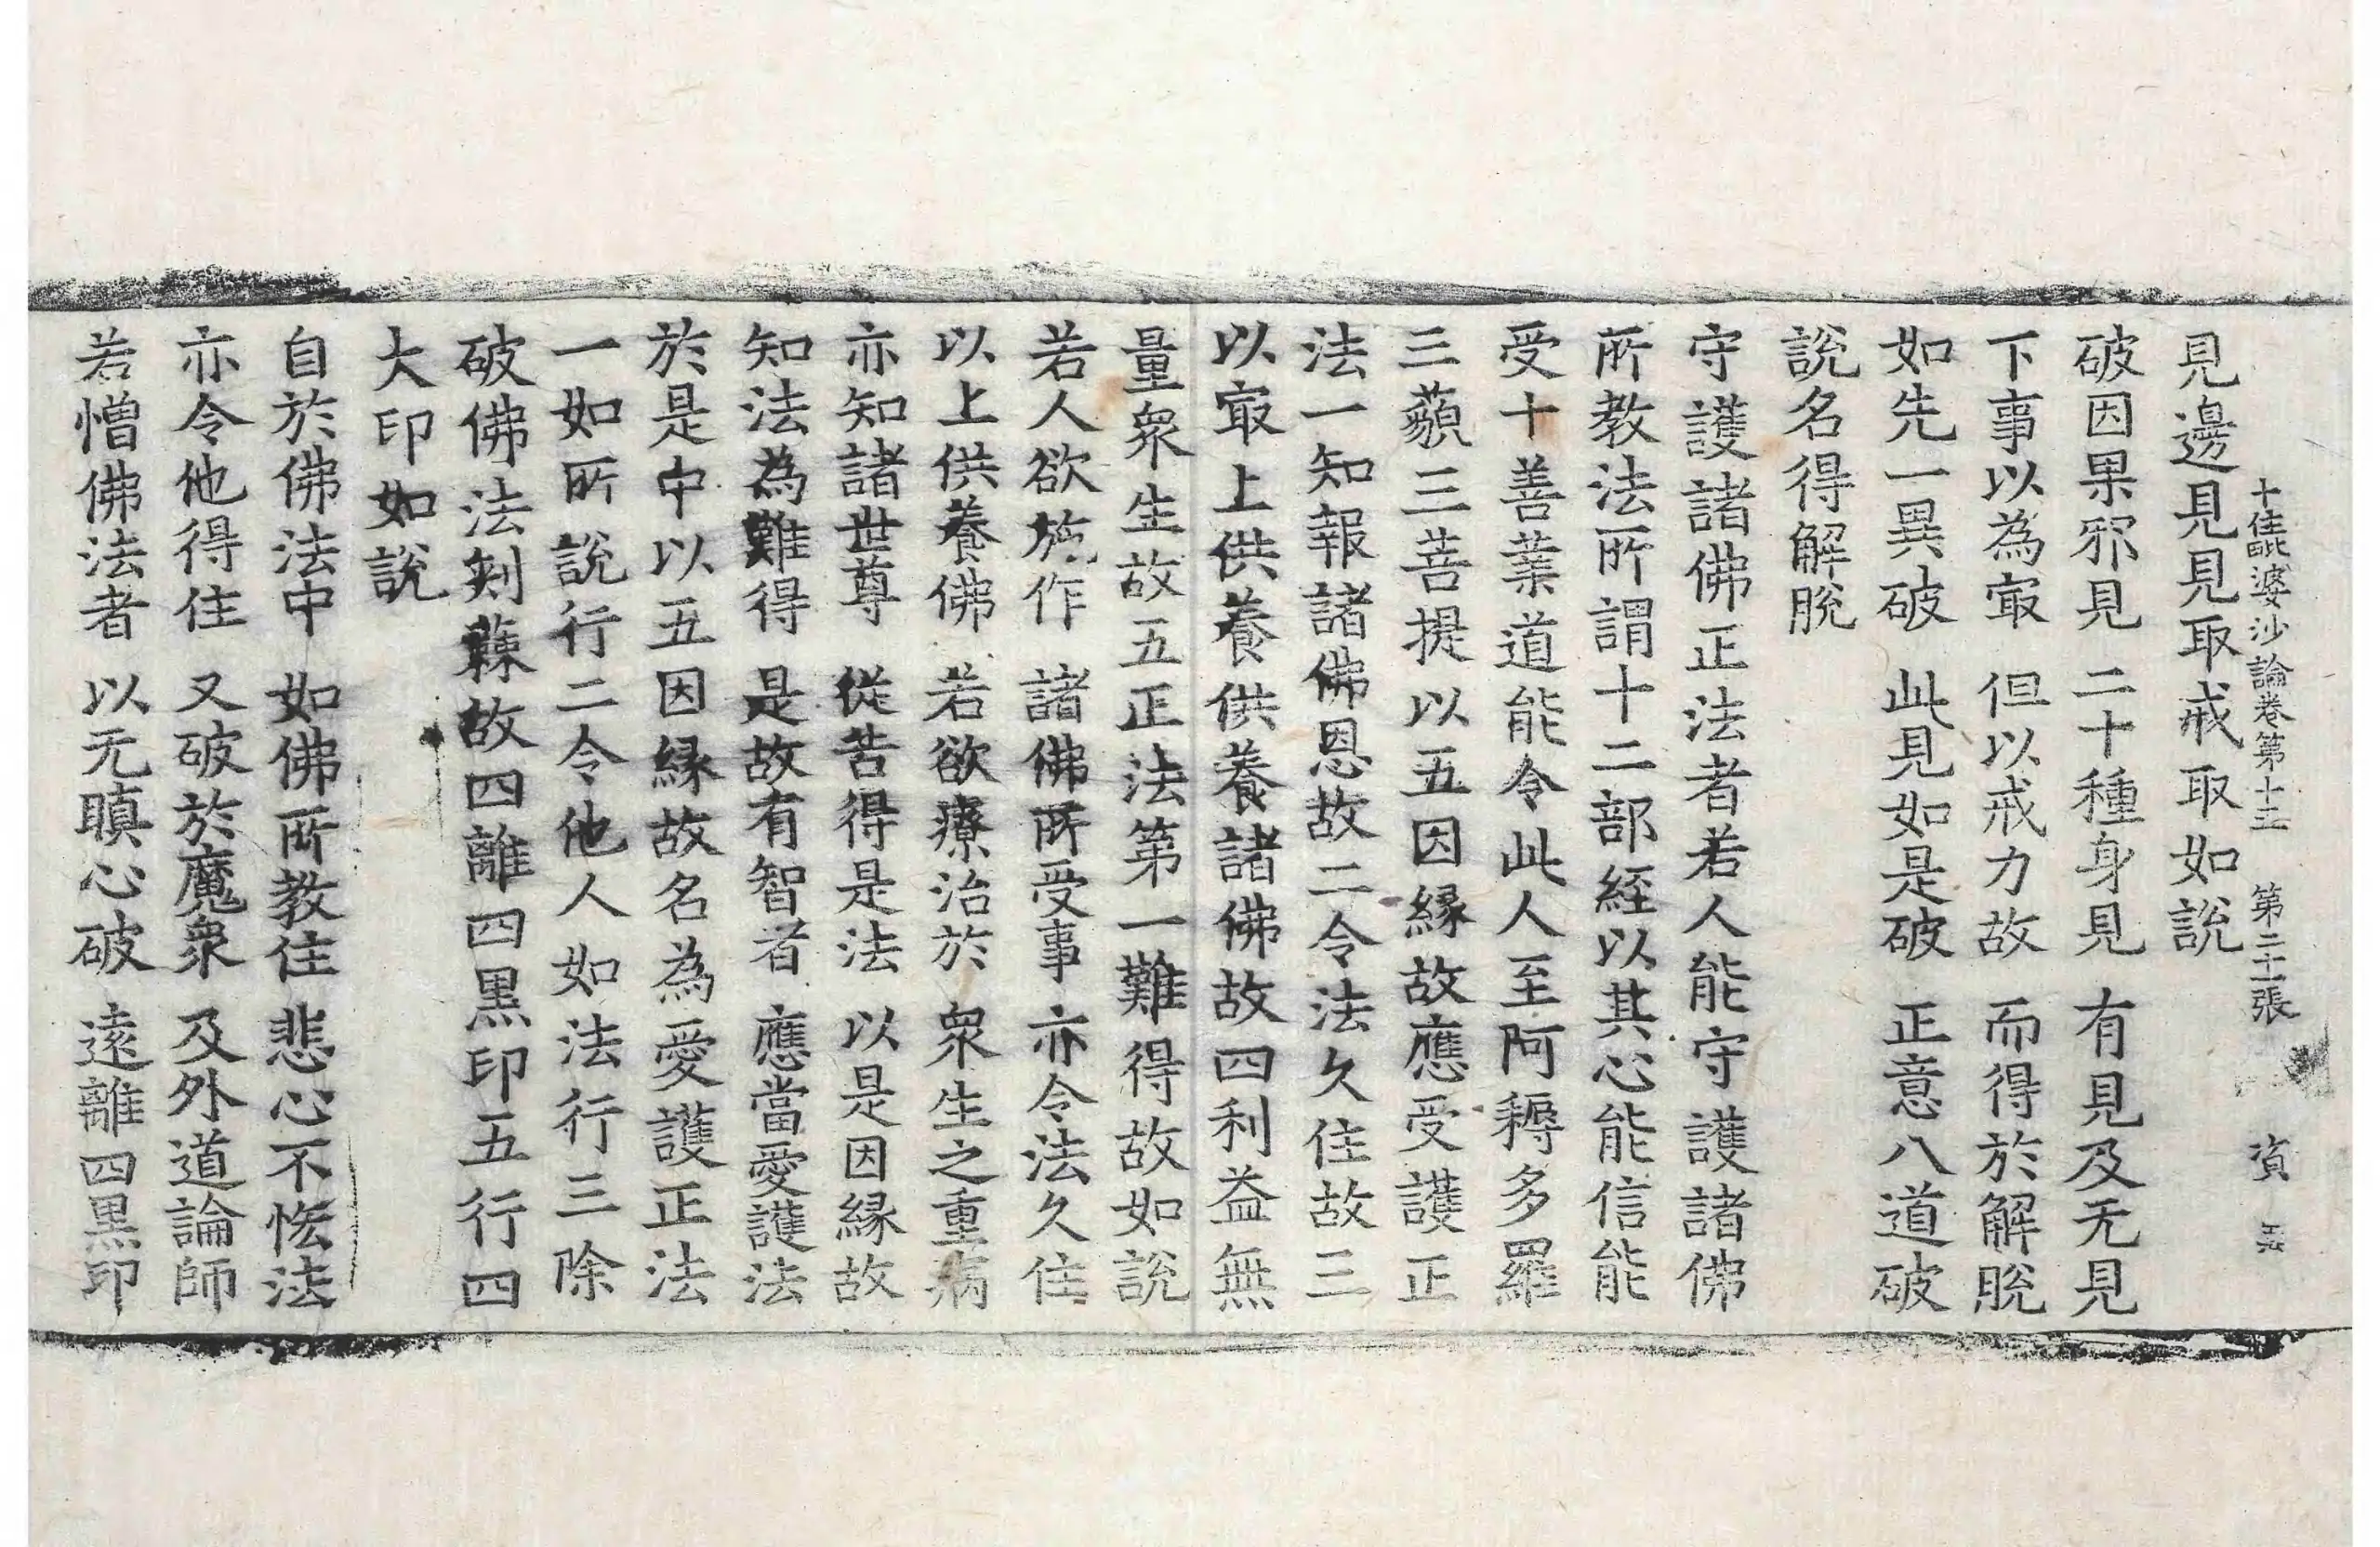 十住毗婆沙論卷第十三 第二十張 資
見邊見見取戒取如說
破因果邪見 二十種身見 有見及无見
下事以為㝡 但以戒力故 而得於解脫
如先一異破 此見如是破 正意八道破
說名得解脫
守護諸佛正法者若人能守護諸佛
所教法所謂十二部經以其心能信能
受十善業道能令此人至阿耨多羅
三藐三菩提以五因緣故應受護正
法一知報諸佛恩故二令法久住故三
以㝡上供養供養諸佛故四利益無
量衆生故五正法第一難得故如說
若人欲於作 諸佛所受事 亦令法久住
以上供養佛 若欲療治於 衆生之重病
亦知諸世尊 從苦得是法 以是因緣故
知法為難得 是故有智者 應當愛護法
於是中以五因緣故名為愛護正法
一如所說行二令他人如法行三除
破佛法刺蕀故四離四黑印五行四
大印如說
自於佛法中 如佛所教住 悲心不悋法
亦令他得住 又破於魔衆 及外道論師
若憎佛法者 以无瞋心破 遠離四黑印